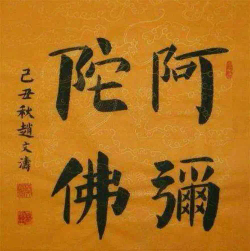 阿彌
陀佛
己丑秋趙文濤